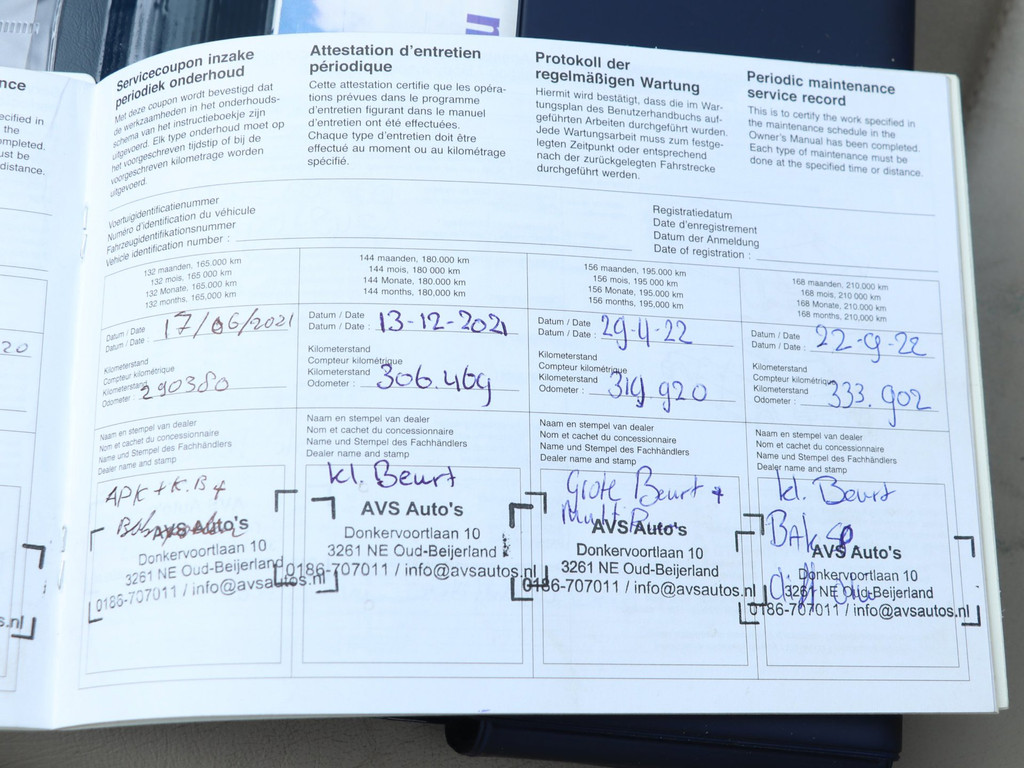 n
nce
ecified in
the
ompleted.
ust be
distance.
20
s.nl
Servicecoupon inzake
periodiek onderhoud
Met deze coupon wordt bevestigd dat
de werkzaamheden in het onderhouds-
schema van het instructieboekje zijn
uitgevoerd. Elk type onderhoud moet op
het voorgeschreven tijdstip of bij de
voorgeschreven kilometrage worden
uitgevoerd.
Attestation d'entretien
périodique
Cette attestation certifie que les opéra-
tions prévues dans le programme
d'entretien figurant dans le manuel
d'entretien ont été effectuées.
Chaque type d'entretien doit être
effectué au moment ou au kilométrage
spécifié.
Protokoll der
regelmäßigen Wartung
Hiermit wird bestätigt, dass die im War-
tungsplan des Benutzerhandbuchs auf-
geführten Arbeiten durchgeführt wurden.
Jede Wartungsarbeit muss zum festge-
legten Zeitpunkt oder entsprechend
nach der zurückgelegten Fahrstrecke
durchgeführt werden.
Periodic maintenance
service record
This is to certify the work specified in
the maintenance schedule in the
Owner's Manual has been completed.
Each type of maintenance must be
done at the specified time or distance.
Voertuigidentificatienummer
Numéro d'identification du véhicule
Fahrzeugidentifikationsnummer
Vehicle identification number :
Registratiedatum
Date d'enregistrement
Datum der Anmeldung
Date of registration :
132 maanden, 165.000 km
132 mois, 165 000 km
132 Monate, 165.000 km
132 months, 165,000 km
Datum / Date
Datum / Date : 17/06/2021
Kilometerstand
Compteur kilométrique
Kilometerstand
Odometer : 290380
Naam en stempel van dealer
Nom et cachet du concessionnaire
Name und Stempel des Fachhändlers
Dealer name and stamp
APK + K.B +
AVS Auto's
Donkervoortlaan 10
3261 NE Oud-Beijerland
0186-707011 / info@avsautos.nl
144 maanden, 180.000 km
144 mois, 180 000 km
144 Monate, 180.000 km
144 months, 180,000 km
Datum / Date
Datum / Date : 13-12-2021
Kilometerstand
Compteur kilométrique
Kilometerstand
Odometer : 306.469
Naam en stempel van dealer
Nom et cachet du concessionnaire
Name und Stempel des Fachhändlers
Dealer name and stamp
kl. Beurt
AVS Auto's
Donkervoortlaan 10
3261 NE Oud-Beijerland
0186-707011 / info@avsautos.nl
156 maanden, 195.000 km
156 mois, 195 000 km
156 Monate, 195.000 km
156 months, 195,000 km
Datum / Date
Datum / Date : 29-4-22
Kilometerstand
Compteur kilométrique
Kilometerstand
Odometer : 319 920
Naam en stempel van dealer
Nom et cachet du concessionnaire
Name und Stempel des Fachhändlers
Dealer name and stamp
Grote Beurt +
AVS Auto's
Donkervoortlaan 10
3261 NE Oud-Beijerland
0186-707011 / info@avsautos.nl
168 maanden, 210.000 km
168 mois, 210 000 km
168 Monate, 210.000 km
168 months, 210,000 km
Datum / Date
Datum / Date : 22-9-22
Kilometerstand
Compteur kilométrique
Kilometerstand
Odometer : 333.902
Naam en stempel van dealer
Nom et cachet du concessionnaire
Name und Stempel des Fachhändlers
Dealer name and stamp
kl. Beurt
AVS Auto's
Donkervoortlaan 10
3261 NE Oud-Beijerland
0186-707011 / info@avsautos.nl